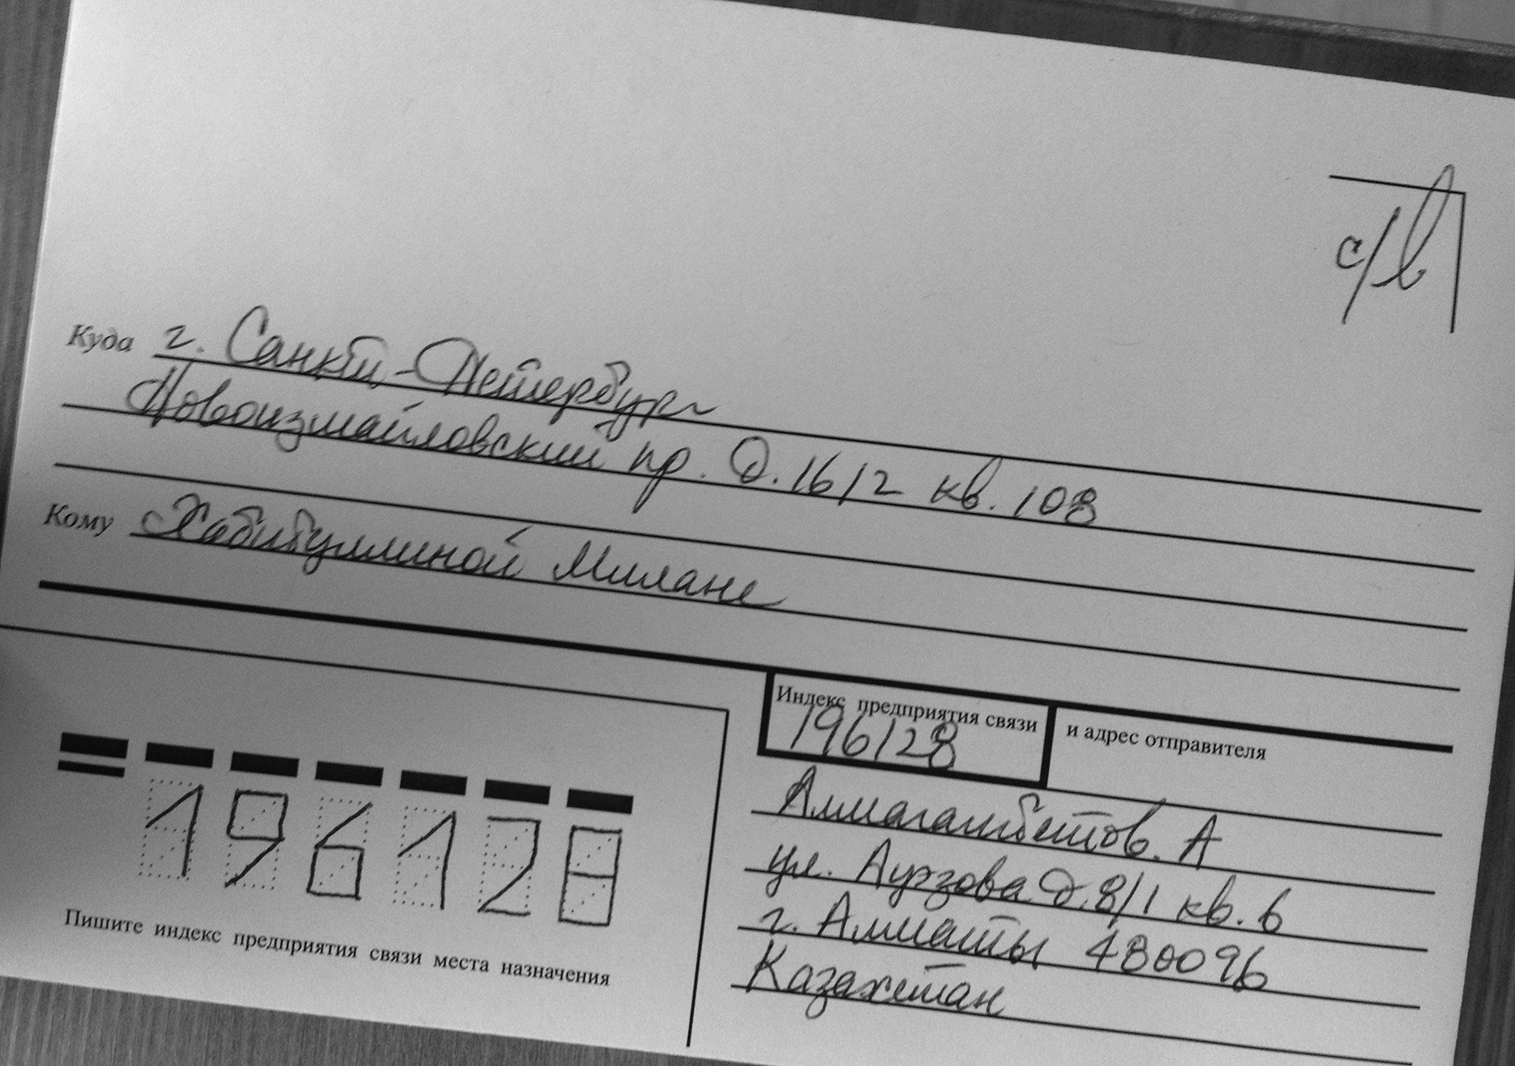 с/в
Куда г. Санкт-Петербург
Новоизмайловский пр. д.16/2 кв. 108
Кому Хабибуллиной Милане
Индекс предприятия связи и адрес отправителя
196128
Алмаганбетов. А
ул. Ауэзова д.8/1 кв. 6
г. Алматы 480096
Казахстан
196128
Пишите индекс предприятия связи места назначения